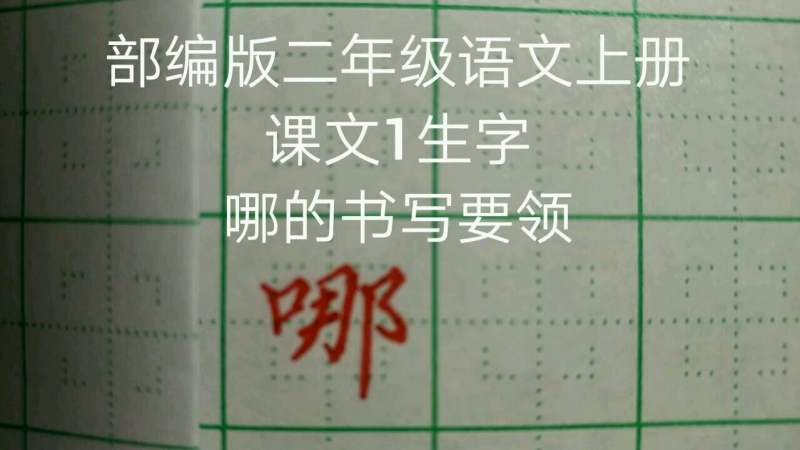 部编版二年级语文上册
课文1生字
哪的书写要领
哪